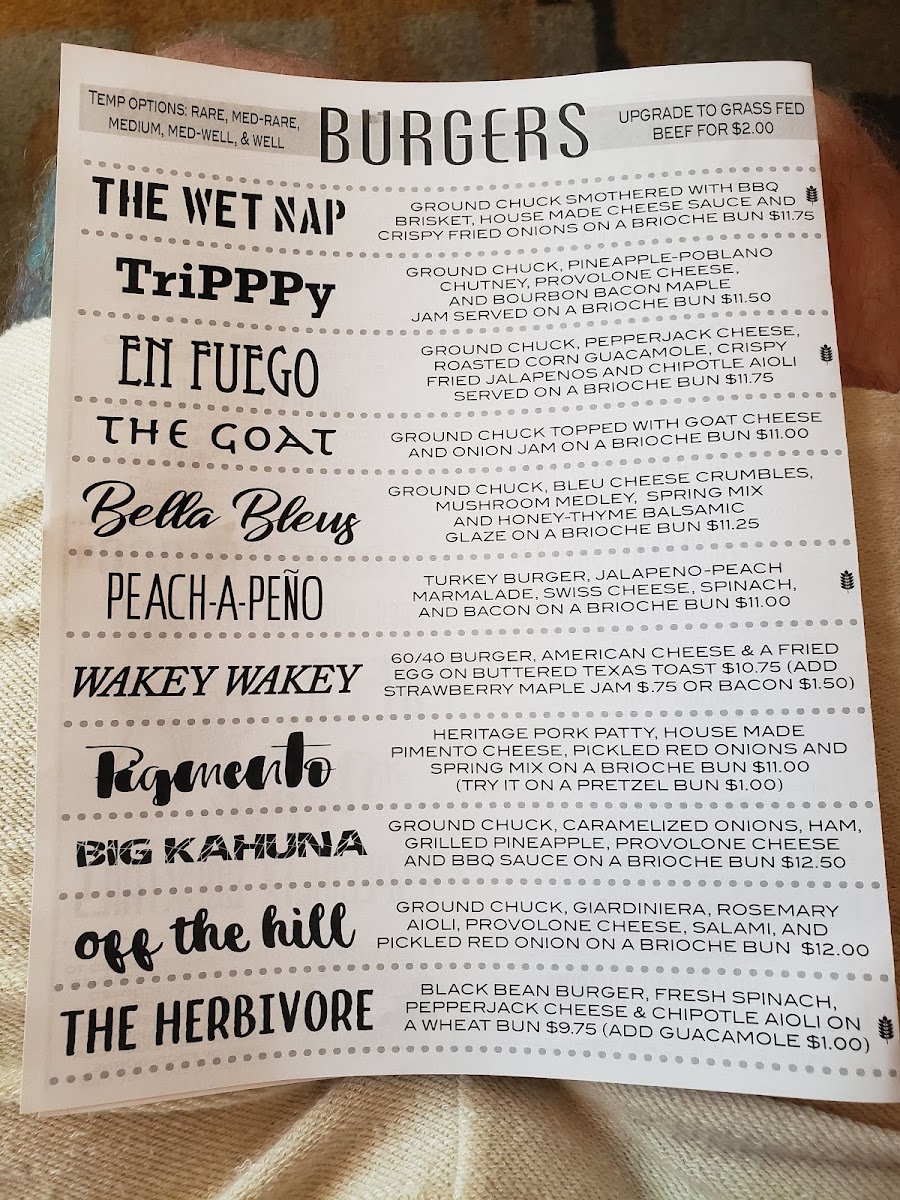 TEMP OPTIONS: RARE, MED-RARE,
MEDIUM, MED-WELL, & WELL
BURGERS
UPGRADE TO GRASS FED
BEEF FOR $2.00
THE WET NAP
GROUND CHUCK SMOTHERED WITH BBQ
BRISKET, HOUSE MADE CHEESE SAUCE AND
CRISPY FRIED ONIONS ON A BRIOCHE BUN $11.75
TriPPPy
GROUND CHUCK, PINEAPPLE-POBLANO
CHUTNEY, PROVOLONE CHEESE,
AND BOURBON BACON MAPLE
JAM SERVED ON A BRIOCHE BUN $11.50
EN FUEGO
GROUND CHUCK, PEPPERJACK CHEESE,
ROASTED CORN GUACAMOLE, CRISPY
FRIED JALAPENOS AND CHIPOTLE AIOLI
SERVED ON A BRIOCHE BUN $11.75
THE GOAT
GROUND CHUCK TOPPED WITH GOAT CHEESE
AND ONION JAM ON A BRIOCHE BUN $11.00
Bella Bleus
GROUND CHUCK, BLEU CHEESE CRUMBLES,
MUSHROOM MEDLEY, SPRING MIX
AND HONEY-THYME BALSAMIC
GLAZE ON A BRIOCHE BUN $11.25
PEACH-A-PEÑO
TURKEY BURGER, JALAPENO-PEACH
MARMALADE, SWISS CHEESE, SPINACH,
AND BACON ON A BRIOCHE BUN $11.00
WAKEY WAKEY
60/40 BURGER, AMERICAN CHEESE & A FRIED
EGG ON BUTTERED TEXAS TOAST $10.75 (ADD
STRAWBERRY MAPLE JAM $.75 OR BACON $1.50)
Pigmento
HERITAGE PORK PATTY, HOUSE MADE
PIMENTO CHEESE, PICKLED RED ONIONS AND
SPRING MIX ON A BRIOCHE BUN $11.00
(TRY IT ON A PRETZEL BUN $1.00)
BIG KAHUNA
GROUND CHUCK, CARAMELIZED ONIONS, HAM,
GRILLED PINEAPPLE, PROVOLONE CHEESE
AND BBQ SAUCE ON A BRIOCHE BUN $12.50
off the hill
GROUND CHUCK, GIARDINIERA, ROSEMARY
AIOLI, PROVOLONE CHEESE, SALAMI, AND
PICKLED RED ONION ON A BRIOCHE BUN $12.00
THE HERBIVORE
BLACK BEAN BURGER, FRESH SPINACH,
PEPPERJACK CHEESE & CHIPOTLE AIOLI ON
A WHEAT BUN $9.75 (ADD GUACAMOLE $1.00)